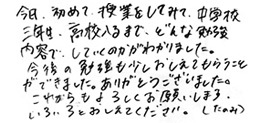 今日、初めて、授業をしてみて、中学校
三年生、高校入るまで、どんな勉強
内容で、していくのかがわかりました。
今後の勉強も少しおしえてもらうこと
ができました。ありがとうございました。
これからもよろしくお願いします。
いろいろとおしえてください。(したのみ)